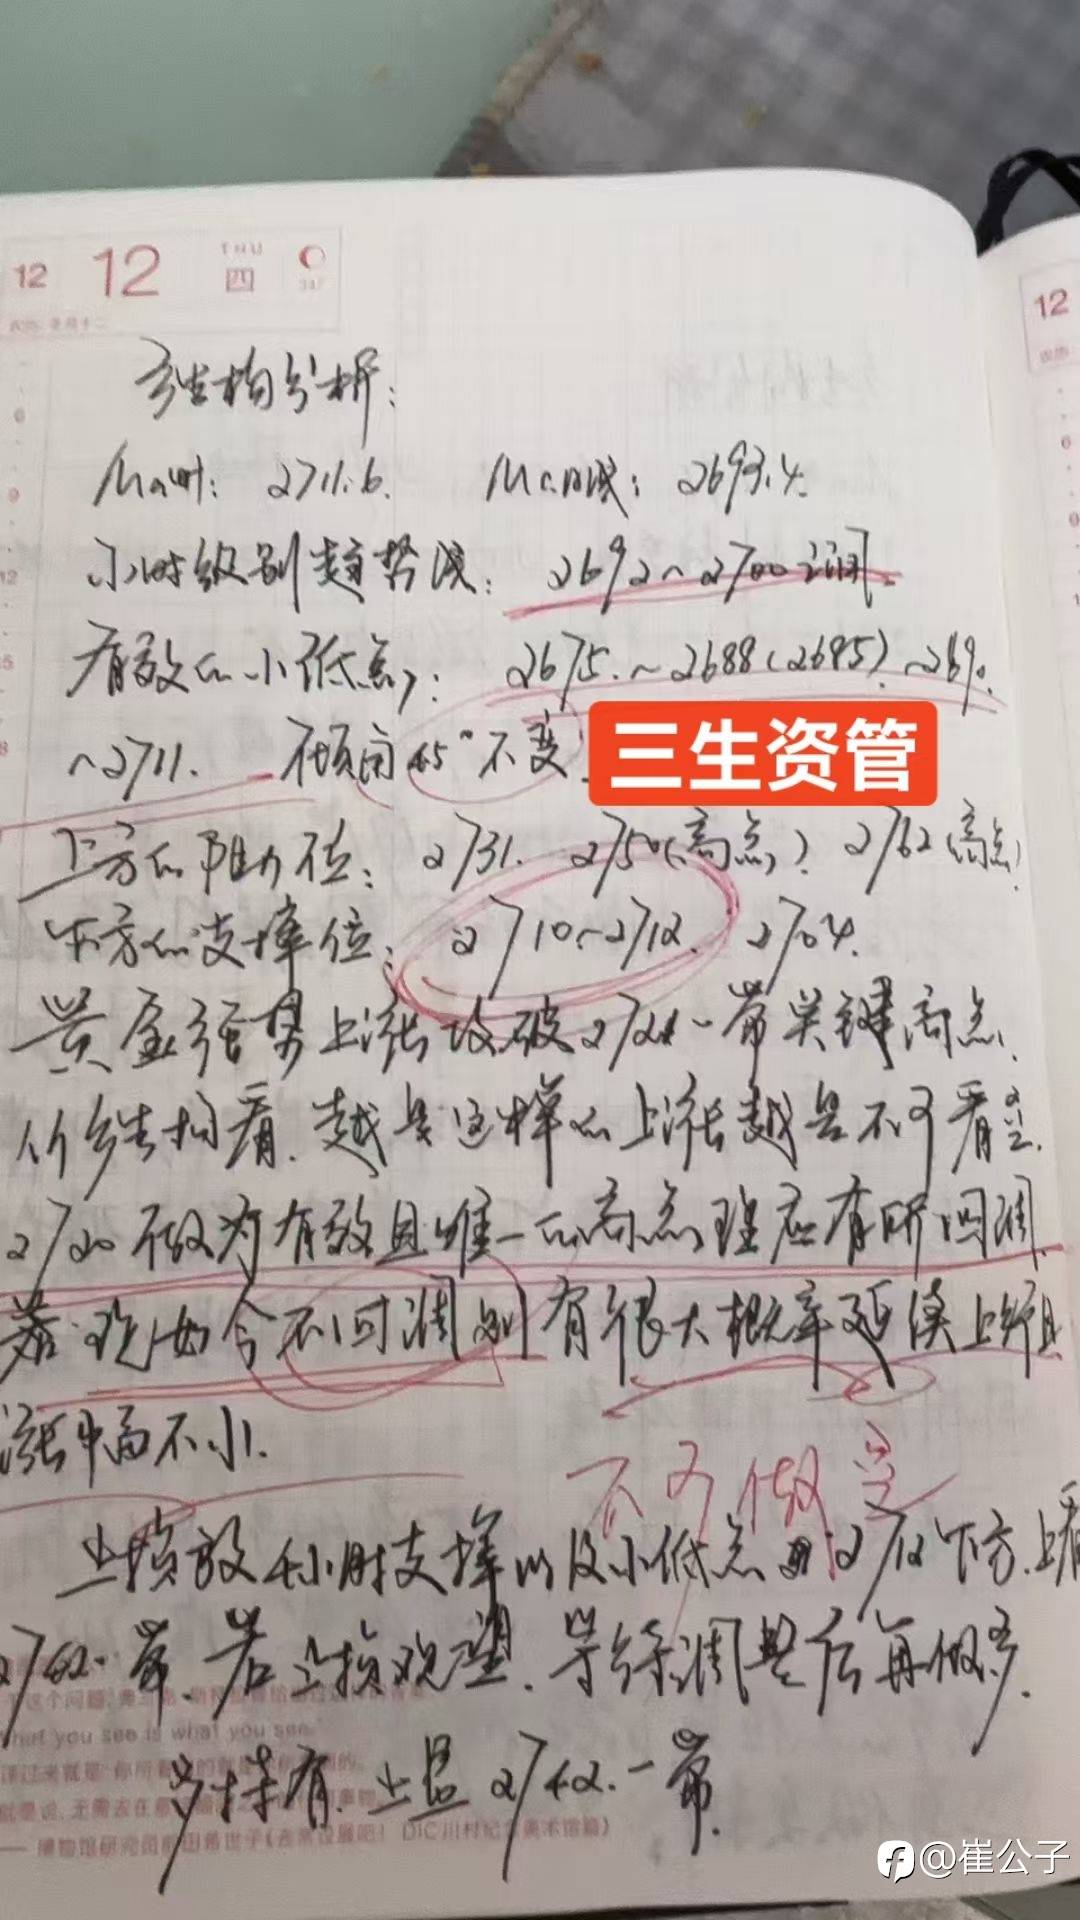 12 12 THU 四
12
结构分析：
Ma时：2711.6. Ma日线：2693.4.
小时级别趋势线：2692~2700之间.
有效的小低点：2675.~2688(2685).~2690.
~2711. 倾角45°不变.
三生资管
上方的阻力位：2731. 2750(高点) 2762(高点)
下方的支撑位：2710~2712. 2704.
黄金强势上涨攻破一带关键高点.
从结构看.越是这样的上涨越是不可看空.
2720做为有效且唯一的高点理应有所回调.
若现如今不回调则有很大概率延续上行且
涨幅不小.
不可做空
止损放4小时支撑以及小低点2712下方.上看
一带.若止损观望.等待调整后再做多.
多持有.止盈2742.一带.
What you see is what you see.
@崔公子